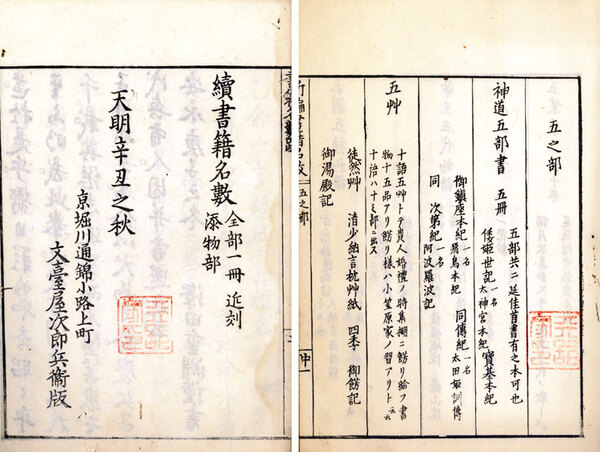 五之部
神道五部書　五冊
五部共ニ延佳首書有之本可也
倭姫世記 一名太神宮本紀　寶基本紀
御鎮座本紀 一名飛鳥本紀　同傳紀 一名太田命訓傳
同　次第紀 一名阿波羅波記
五艸
十語五艸トテ貴人婚禮ノ時集棚ニ餝リ給フ書
物十五品アリ餝リ様ハ小笠原家ノ習アリト云
十語ハ十之部ニ出ス
徒然艸　清少納言枕艸紙　四季　御餝記
御湯殿記
書籍名數　五之部
續書籍名數　全部一冊　近刻
添物部
天明辛丑之秋
京堀川通錦小路上町
文臺屋次郎兵衛版